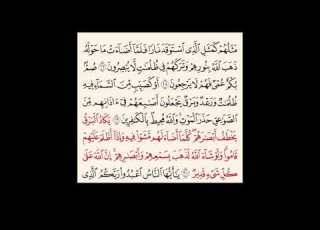 مَثَلُهُمْ كَمَثَلِ الَّذِي اسْتَوْقَدَ نَارًا فَلَمَّا أَضَاءَتْ مَا حَوْلَهُ
ذَهَبَ اللَّهُ بِنُورِهِمْ وَتَرَكَهُمْ فِي ظُلُمَاتٍ لَّا يُبْصِرُونَ ۝ صُمٌّ
بُكْمٌ عُمْيٌ فَهُمْ لَا يَرْجِعُونَ ۝ أَوْ كَصَيِّبٍ مِّنَ السَّمَاءِ فِيهِ
ظُلُمَاتٌ وَرَعْدٌ وَبَرْقٌ يَجْعَلُونَ أَصَابِعَهُمْ فِي آذَانِهِم مِّنَ
الصَّوَاعِقِ حَذَرَ الْمَوْتِ وَاللَّهُ مُحِيطٌ بِالْكَافِرِينَ ۝ يَكَادُ الْبَرْقُ
يَخْطَفُ أَبْصَارَهُمْ كُلَّمَا أَضَاءَ لَهُم مَّشَوْا فِيهِ وَإِذَا أَظْلَمَ عَلَيْهِمْ
قَامُوا وَلَوْ شَاءَ اللَّهُ لَذَهَبَ بِسَمْعِهِمْ وَأَبْصَارِهِمْ إِنَّ اللَّهَ عَلَىٰ
كُلِّ شَيْءٍ قَدِيرٌ ۝ يَا أَيُّهَا النَّاسُ اعْبُدُوا رَبَّكُمُ الَّذِي